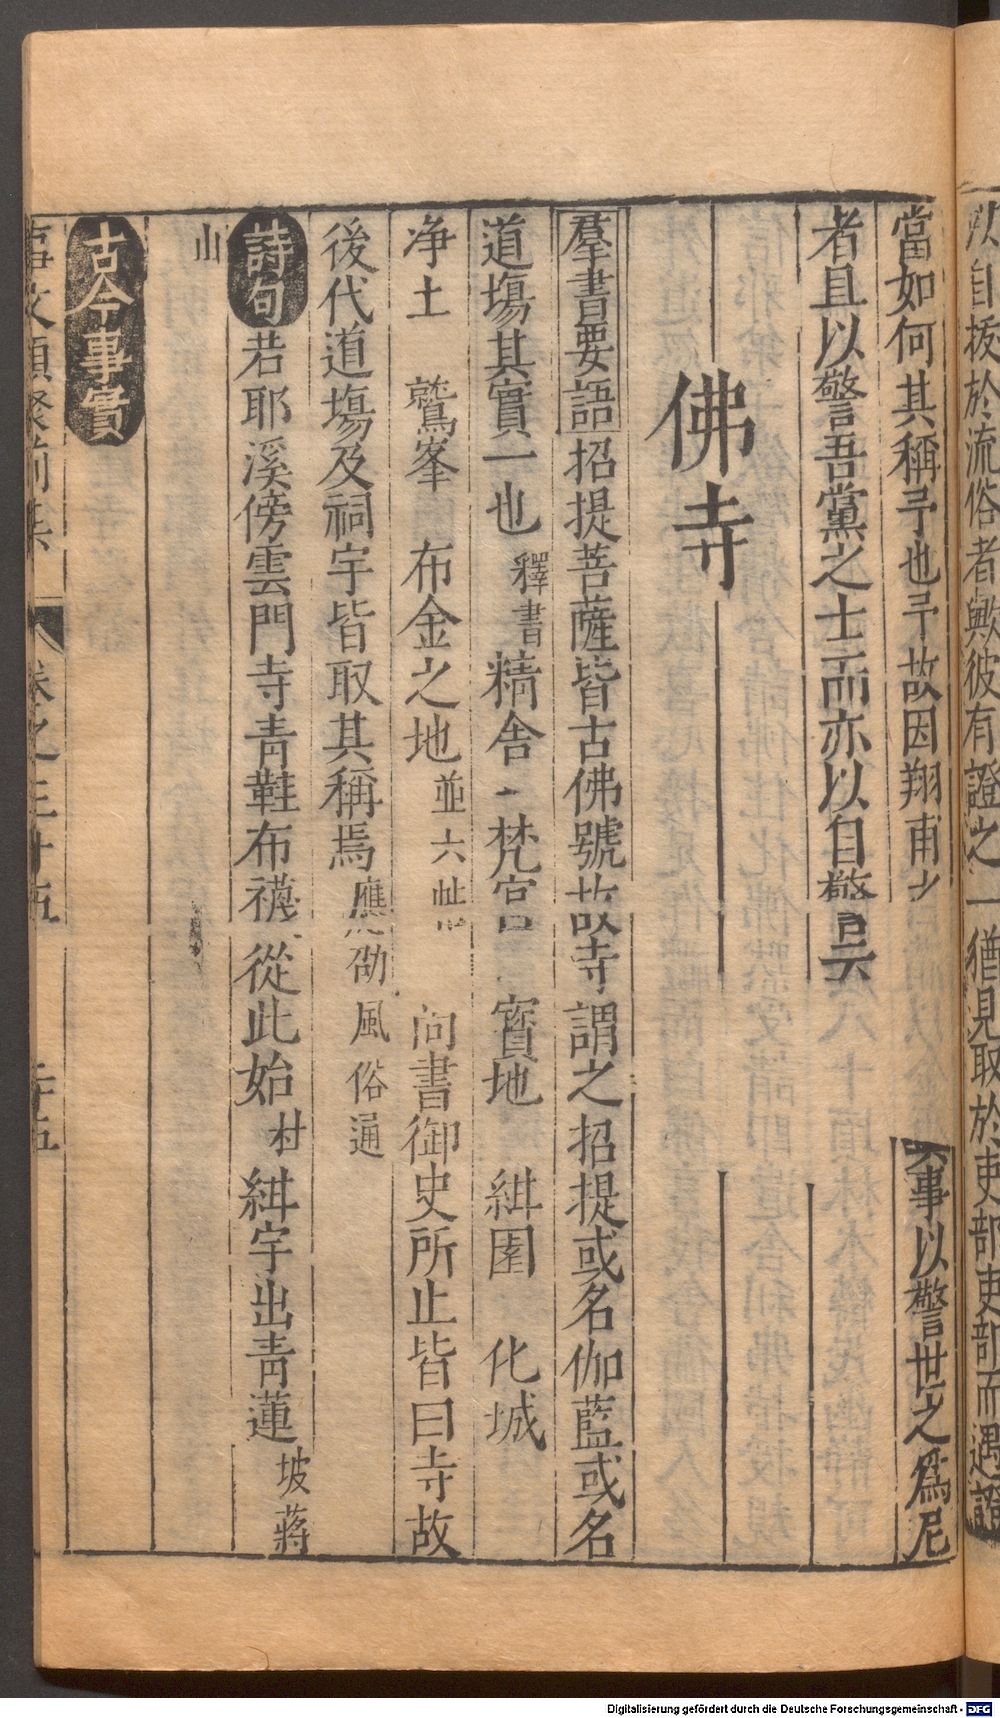 㳄自拔於流俗者歟彼有證之一猶見取於吏部吏部而遇證
當如何其稱乎也乎故因翔甫之事以警世之為尼
者且以警吾黨之士而亦以自警云
佛寺
羣書要語招提菩薩皆古佛號故寺謂之招提或名伽藍或名
道場其實一也釋書精舍 梵宮 寳地 紺園 化城
淨土 鷲峯 布金之地並六帖 問書御史所止皆曰寺故
後代道場及祠宇皆取其稱焉應劭風俗通
詩句若耶溪傍雲門寺青鞋布襪從此始杜紺宇出青蓮坡蔣
山
古今事實
事文類聚前集 卷之三十五 二十五
Digitalisierung gefördert durch die Deutsche Forschungsgemeinschaft - DFG